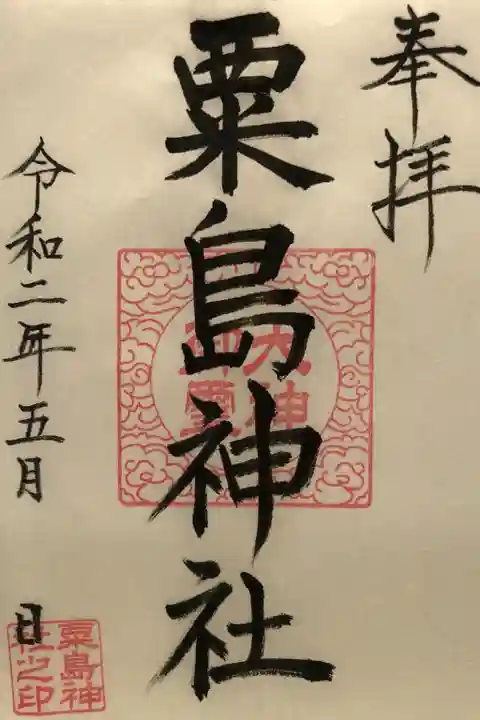 奉拝
粟島神社
大神
御霊
令和二年五月　日
粟島神
社之印